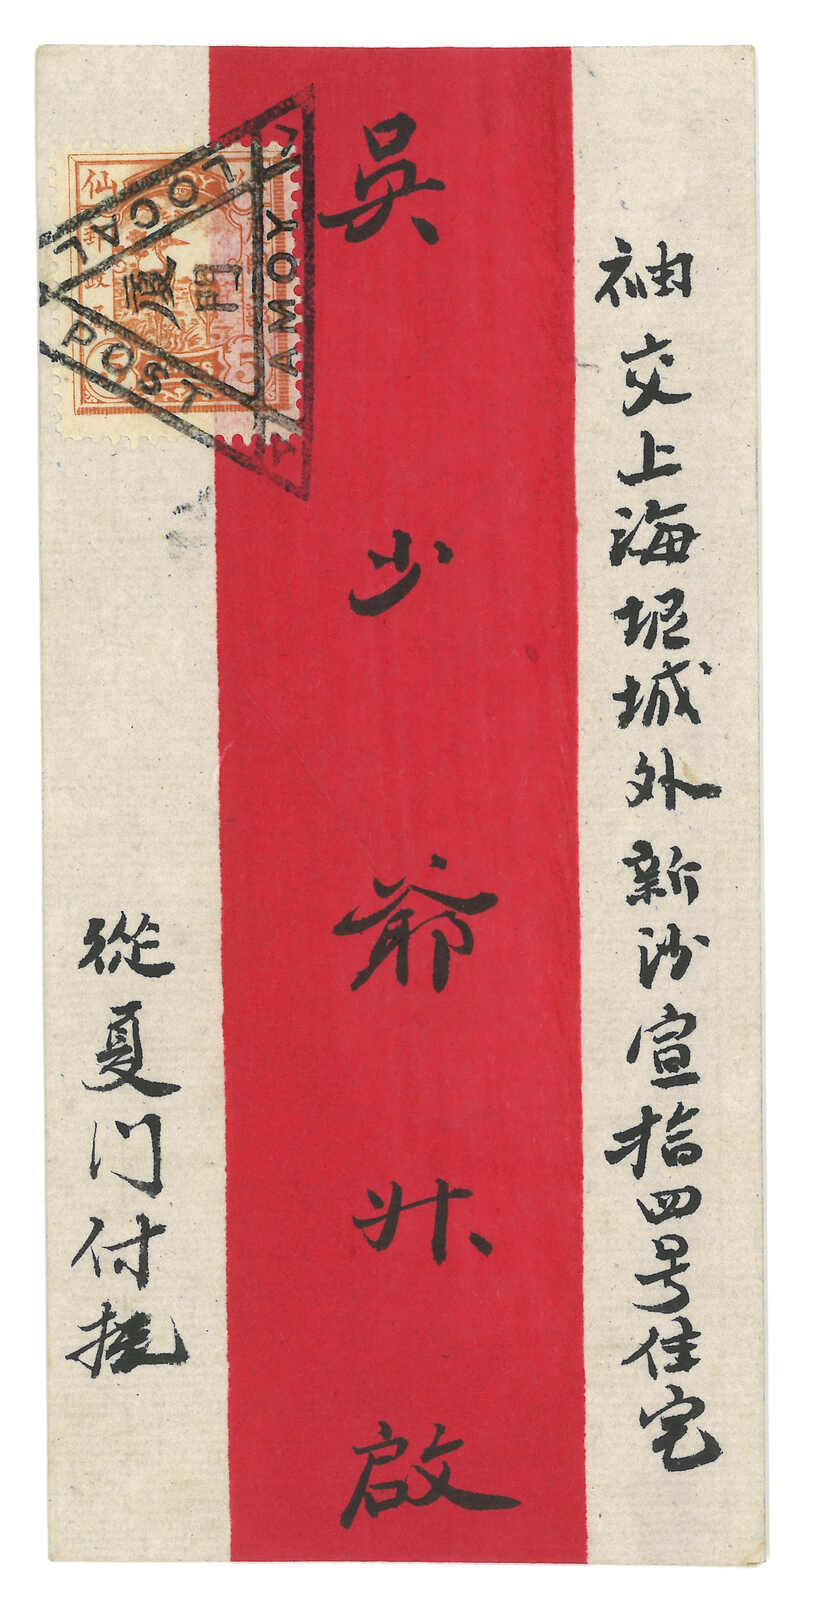 袖交上海地城外新沙宣拾四号住宅
吳少爺升啟
從夏门付
AMOY
LOCAL
POST
廈門
仙
5